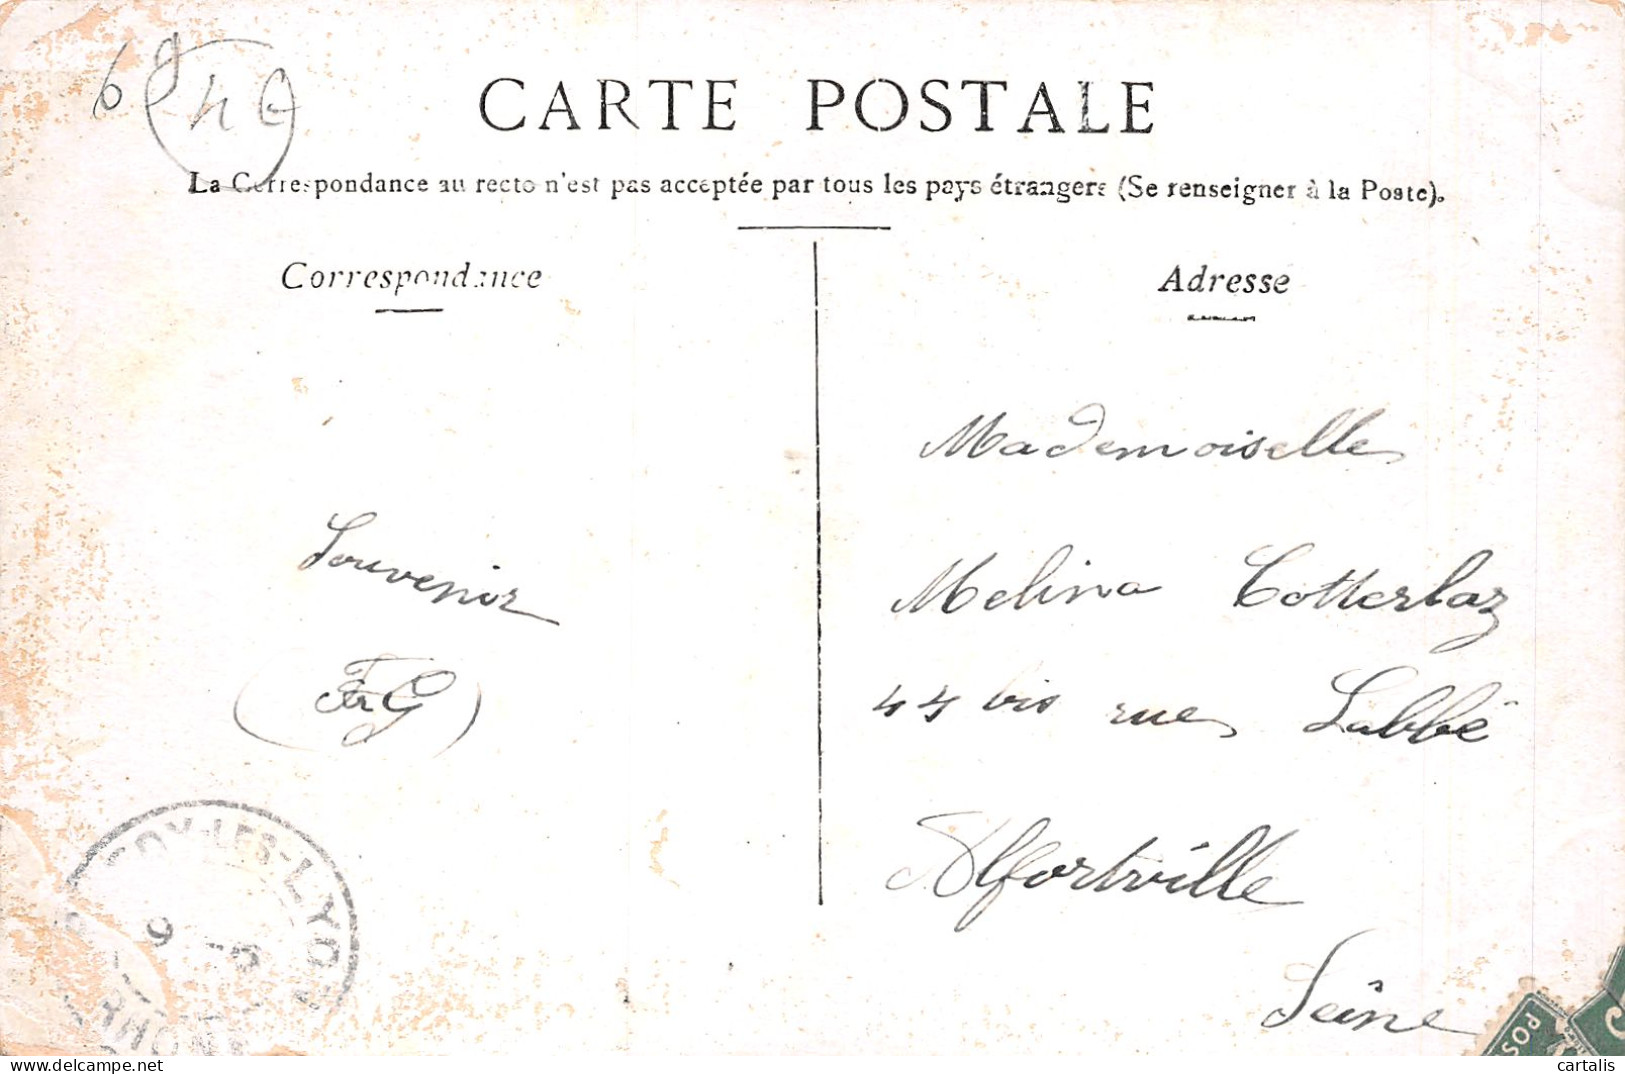 69
CARTE POSTALE
La Correspondance au recto n'est pas acceptée par tous les pays étrangers (Se renseigner à la Poste).
Correspondance
Souvenir
Adresse
Mademoiselle
Melina Cotterlaz
44 bis rue Labbé
Alfortville
Seine
-LES-LYON
RHONE
POS
www.delcampe.net
cartalis